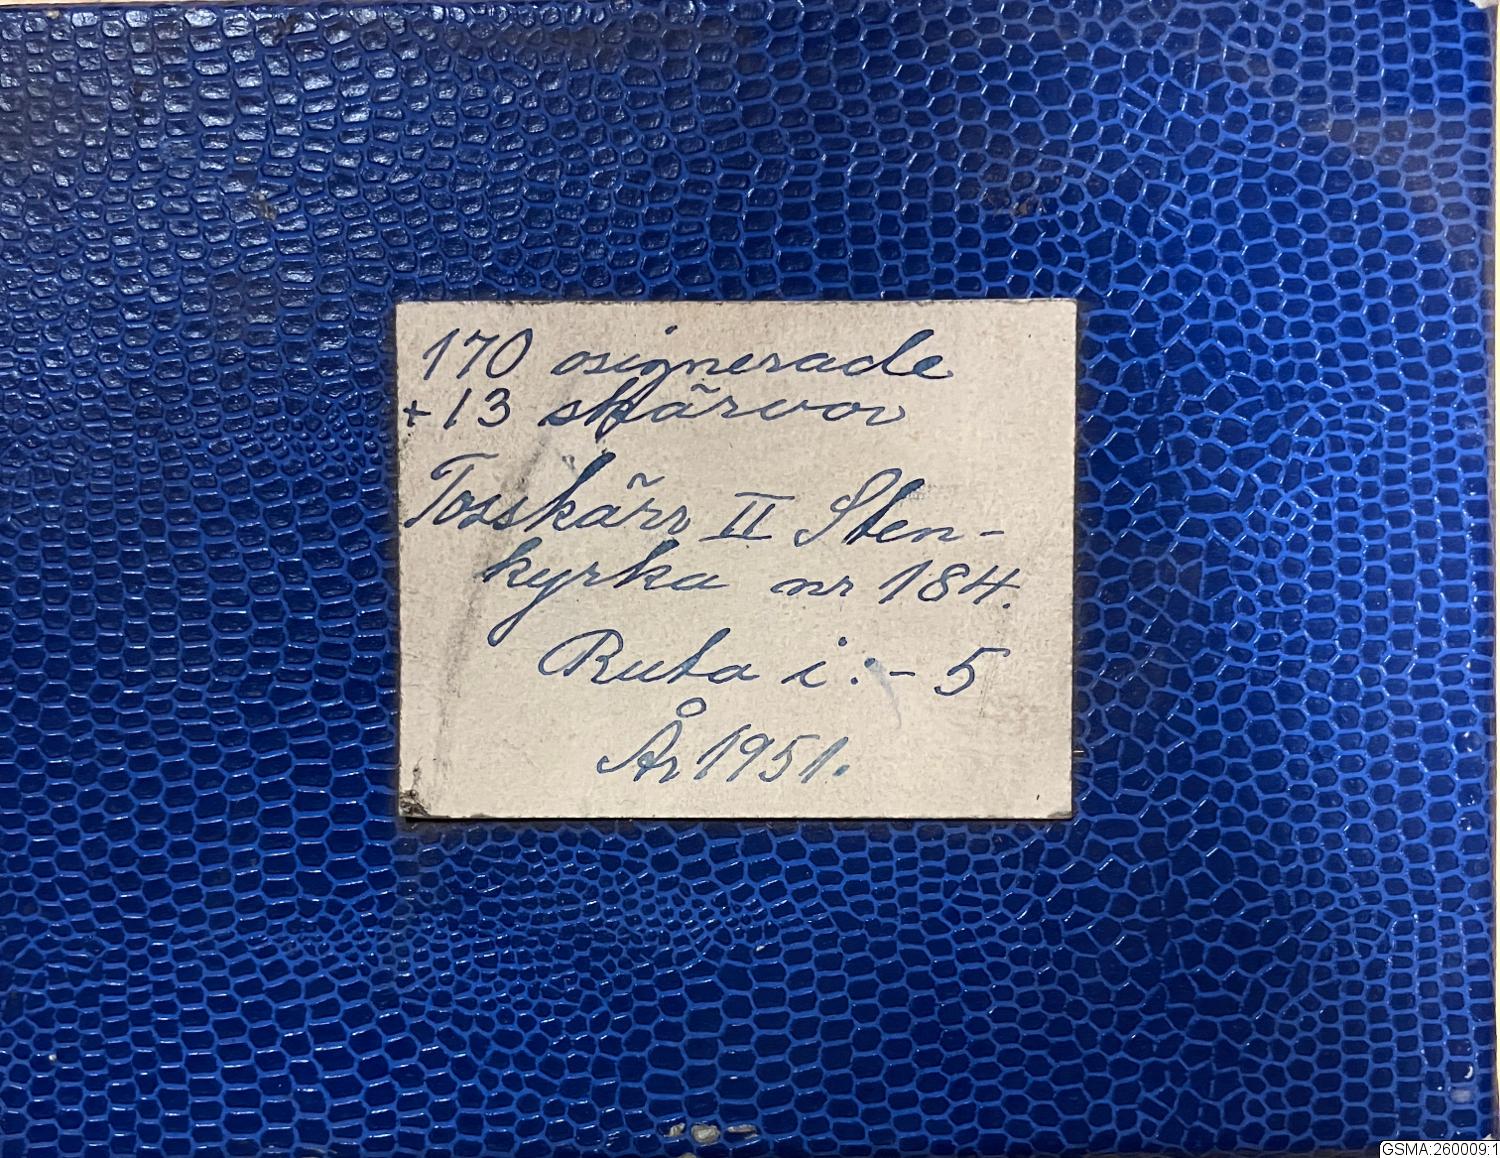 170 osignerade
+ 13 skärvor
Tosskärr II Sten-
kyrka nr 184.
Ruta i:-5
År 1951.
GSMA:260009:1